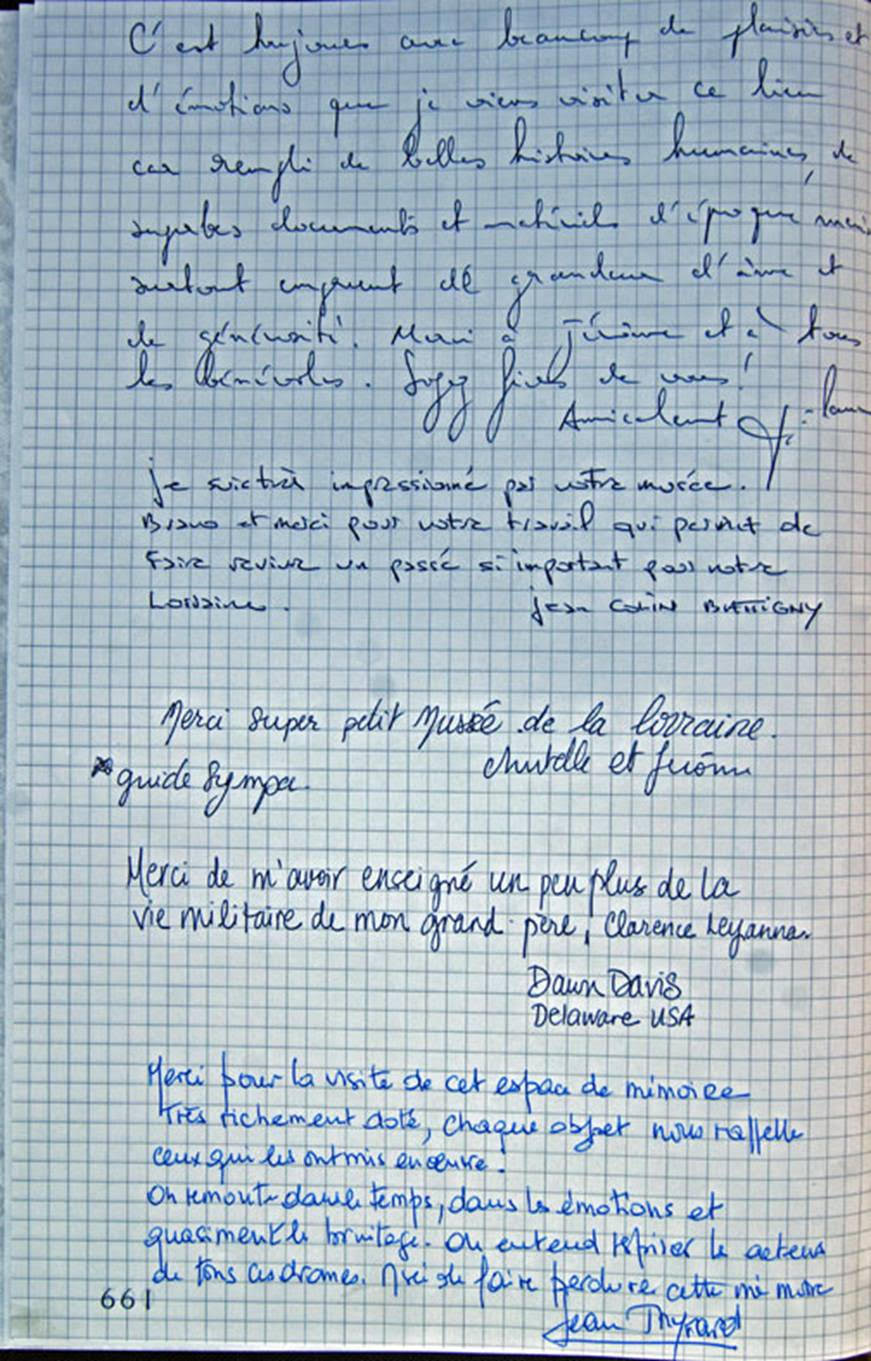 C'est toujours avec beaucoup de plaisirs et
d'émotions que je viens visiter ce lieu
car rempli de belles histoires humaines, de
superbes documents et matériels d'époque mais
surtout empreint de grandeur d'âme et
de générosité. Merci à Jérôme et à tous
les bénévoles. Soyez fiers de vous!
Amicalement
je suis très impressionné par votre musée.
Bravo et merci pour votre travail qui permet de
faire revivre un passé si important pour notre
Lorraine. jean COLIN BATTIGNY
Merci super petit Musée de la lorraine.
et Jérôme
guide sympa.
Merci de m'avoir enseigné un peu plus de la
vie militaire de mon grand-père, Clarence Leyanna.
Dawn Davis
Delaware USA
Merci pour la visite de cet espace de mémoire
très richement doté, chaque objet nous rappelle
ceux qui les ont mis en oeuvre.
On remonte dans le temps, dans les émotions et
quasiment le bruitage. On entend respirer les acteurs
de tous ces drames. Merci de faire perdurer cette mémoire
Jean Thyrard
661